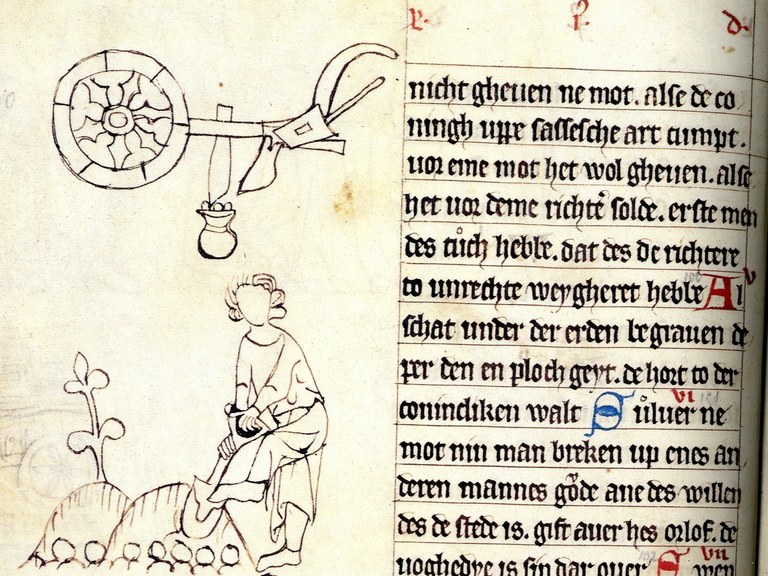 nicht gheuen ne mot. alse de co
ningh uppe sassesche art cumpt.
uor eme mot het wol gheuen. alse
het uor deme richte solde. erste men
des tuͦch hebbe. dat des de richtere
to unrechte weygheret hebbe Al V
schat under der erden begrauen de
per den en ploch geyt. de hort to der
coninchliken walt VI Suͦluer ne
mot nin man breken up enes an
deren mannes gode ane des willen
des de stede is. gift auer hes orlof. de
uoghedye is sin dar ouer VII Swen